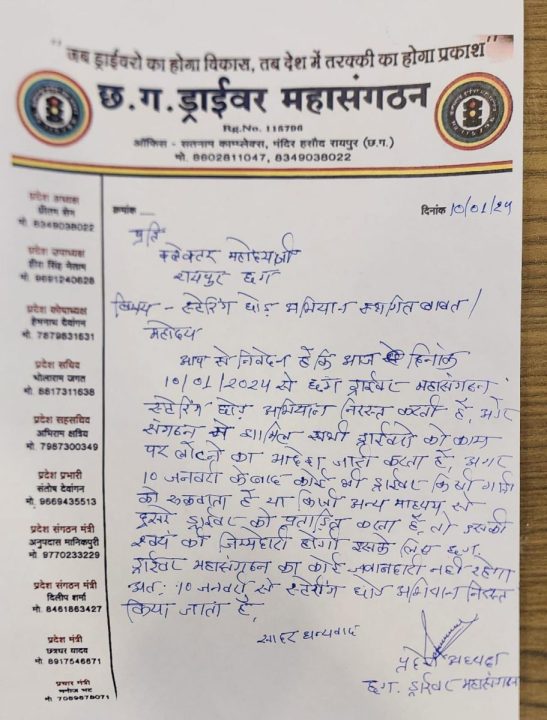 "जब ड्राईवरो का होगा विकास, तब देश में तरक्की का होगा प्रकाश"
छ.ग.ड्राईवर महासंगठन
Rg.No. 116796
ऑफिस - सतनाम काम्प्लेक्स, मंदिर हसौद रायपुर (छ.ग.)
मो. 8602811047, 8349038022
प्रदेश अध्यक्ष
प्रीतम सेन
मो. 8349038022
प्रदेश उपाध्यक्ष
हीरा सिंह नेताम
मो. 9691240628
प्रदेश कोषाध्यक्ष
हेमनाथ देवांगन
मो. 7879831631
प्रदेश सचिव
भोलाराम जगत
मो. 8817311638
प्रदेश सहसचिव
अभिराम क्षत्रिय
मो. 7987300349
प्रदेश प्रभारी
संतोष देवांगन
मो. 9669435513
प्रदेश संगठन मंत्री
अनुपदास मानिकपुरी
मो. 9770233229
प्रदेश संगठन मंत्री
दिलीप शर्मा
मो. 8461863427
प्रदेश मंत्री
छत्रधर यादव
मो. 8917546671
प्रचार मंत्री
मनोज भट
मो. 7089878071
क्रमांक
दिनांक 10/01/24
प्रति
कलेक्टर महोदय जी
रायपुर छ०ग
विषय - स्टेरिंग छोड़ अभियान स्थगित बाबत /
महोदय
आप से निवेदन हैं कि आज दिनांक
10/01/2024 से छ०ग ड्राईवर महासंगठन
स्टेरिंग छोड़ अभियान निरस्त करती हैं, और
संगठन से शामिल सभी ड्राईवरो को काम
पर लौटने का आदेश जारी करता हैं, अगर
10 जनवरी के बाद कोई भी ड्राईवर किसी गाड़ी
को रुकवाता हैं या किसी अन्य माध्यम से
दुसरे ड्राईवर को प्रताड़ित करता हैं, तो इसकी
स्वयं की जिम्मेदारी होगी इसके लिए छ०ग
ड्राईवर महासंगठन का कोई जवाबदारी नही रहेगा
अतः 10 जनवरी से स्टेरिंग छोड़ अभियान निरस्त
किया जाता हैं,
सादर धन्यवाद
प्रदेश अध्यक्ष
छ०ग. ड्राईवर महासंगठन